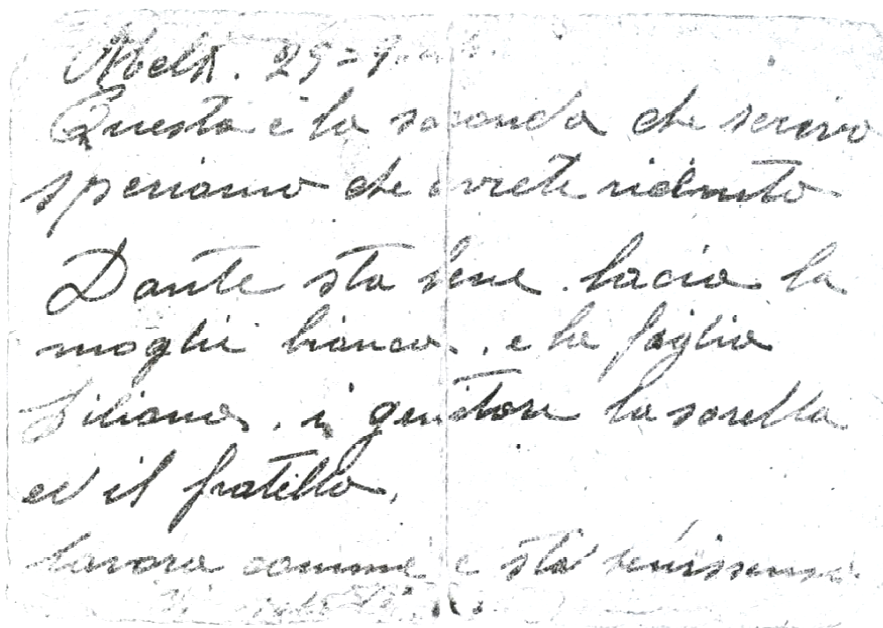 25 =
Questa è la seconda che scrivo
speriamo che avrete ricevuto
Dante sta bene. bacia la
moglie bianca. e la figlia
Liliana. i genitori la sorella
ed il fratello.
lavora comme e sta benissimo.